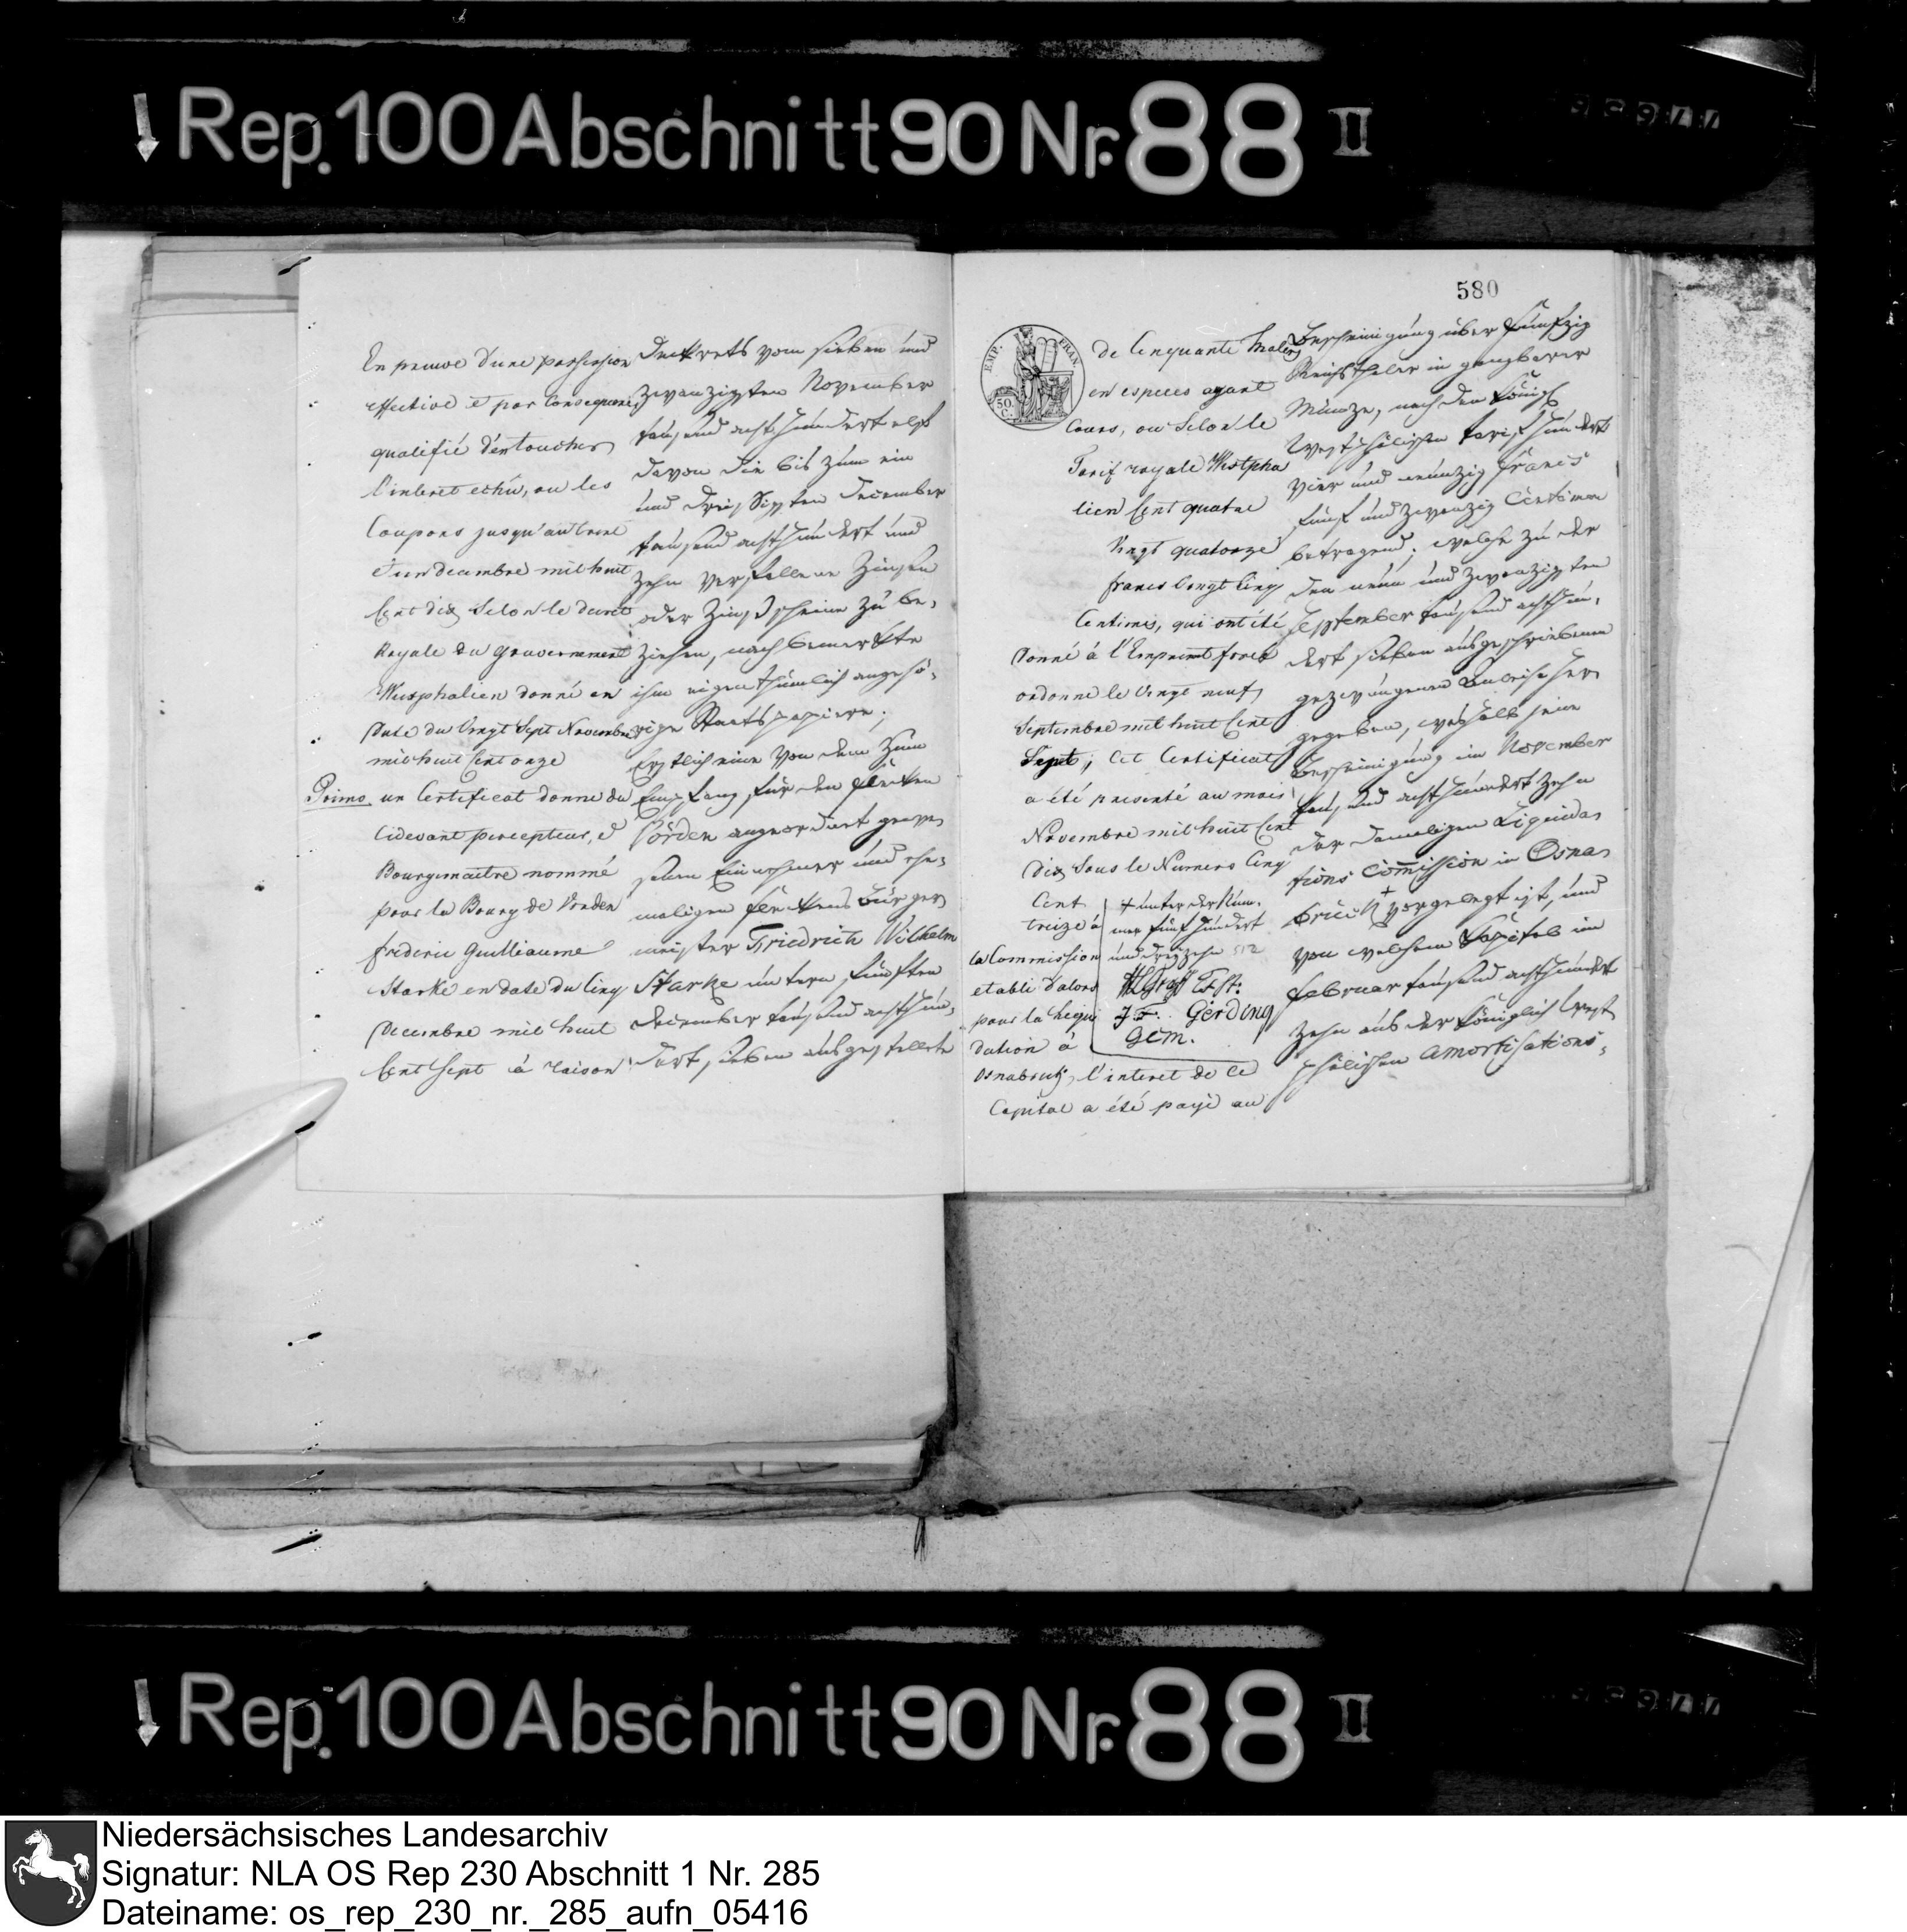 Rep. 100 Abschnitt 90 Nr. 88 II
En preuve d'une possession
effective et par consequence
qualifié d'en toucher
l'interet echû, ou les
Coupons jusqu'au trente
d'un decembre mil huit
Cent dix selon le decret
Royale du gouvernement
Westphalien donné en
Date du Vingt Sept Novembre
mil huit Cent onze
Primo un Certificat donné du
Cidevant percepteur, et
Bourgemaitre nommé
pour la Bourg de Vörden
frederic Guilliaume
Starke en date du Cinq
Decembre mil huit
Cent Sept à raison
Dekrets vom sieben und
zwanzigsten November
tausend achthundert elf
davon die bis zum ein
und dreißigsten December
tausend achthundert und
zehn verfallene Zinsen
oder Zinsscheine zu be-
ziehen, nachbemerkte
ihm eigenthümlich angehö-
rige Staatspapiere;
Erstlich eine von dem zum
Empfang für den Flecken
Vörden angeordnet gewe-
senen Einnehmer und ehe-
maligen Fleckens Bürger-
meister Friedrich Wilhelm
Starke unterm fünften
December tausend achthun-
dert sieben ausgestellte
580
EMP. FRAN.
50 C.
de Cinquante Thalers
en especes ayant
Cours, ou Selon le
Tarif royale Westpha
lien Cent quatre
Vingt quatorze
francs Vingt Cinq
Centimes, qui ont été
Donné à l'Emprunt forcé
ordonné le Vingt neuf
Septembre mil huit Cent
Sept; Cet Certificat
a été presenté au mois
Novembre mil huit Cent
Dix Sous le Numero Cinq
Cent
treize à
la Commission
etabli d'alors
pour la liqui
dation à
Osnabruk, l'interet de ce
Capital a été payé au
+ unter der Num-
mer fünfhundert
und dreyzehn
J. F. Gerding
Gem.
Bescheinigung über fünfzig
Reichsthaler in gangbarer
Münze, nach dem Königl
Westphälischen Tarif hundert
vier und neunzig Francs
fünf und zwanzig Centimen
betragend; welche zu der
den neun und zwanzigsten
September tausend achthun-
dert sieben ausgeschriebenen
gezwungenen Anleihe her
gegeben, weshalb seine
Bescheinigung im November
tausend achthundert zehn
der damaligen Liquida-
tions Commission in Osna-
brück + vorgelegt ist, und
von welchem Kapitel im
Februar tausend achthundert
zehn aus der Königlich West
phälischen Amortisations-
Rep. 100 Abschnitt 90 Nr. 88 II
Niedersächsisches Landesarchiv
Signatur: NLA OS Rep 230 Abschnitt 1 Nr. 285
Dateiname: os_rep_230_nr._285_aufn_05416